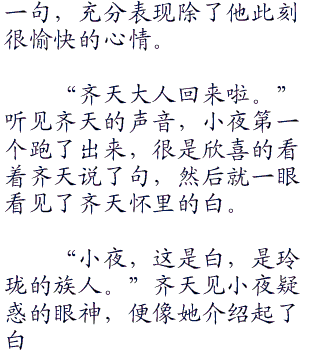 一句，充分表现除了他此刻
很愉快的心情。
“齐天大人回来啦。”
听见齐天的声音，小夜第一
个跑了出来，很是欣喜的看
着齐天说了句，然后就一眼
看见了齐天怀里的白。
“小夜，这是白，是玲
珑的族人。”齐天见小夜疑
惑的眼神，便像她介绍起了
白